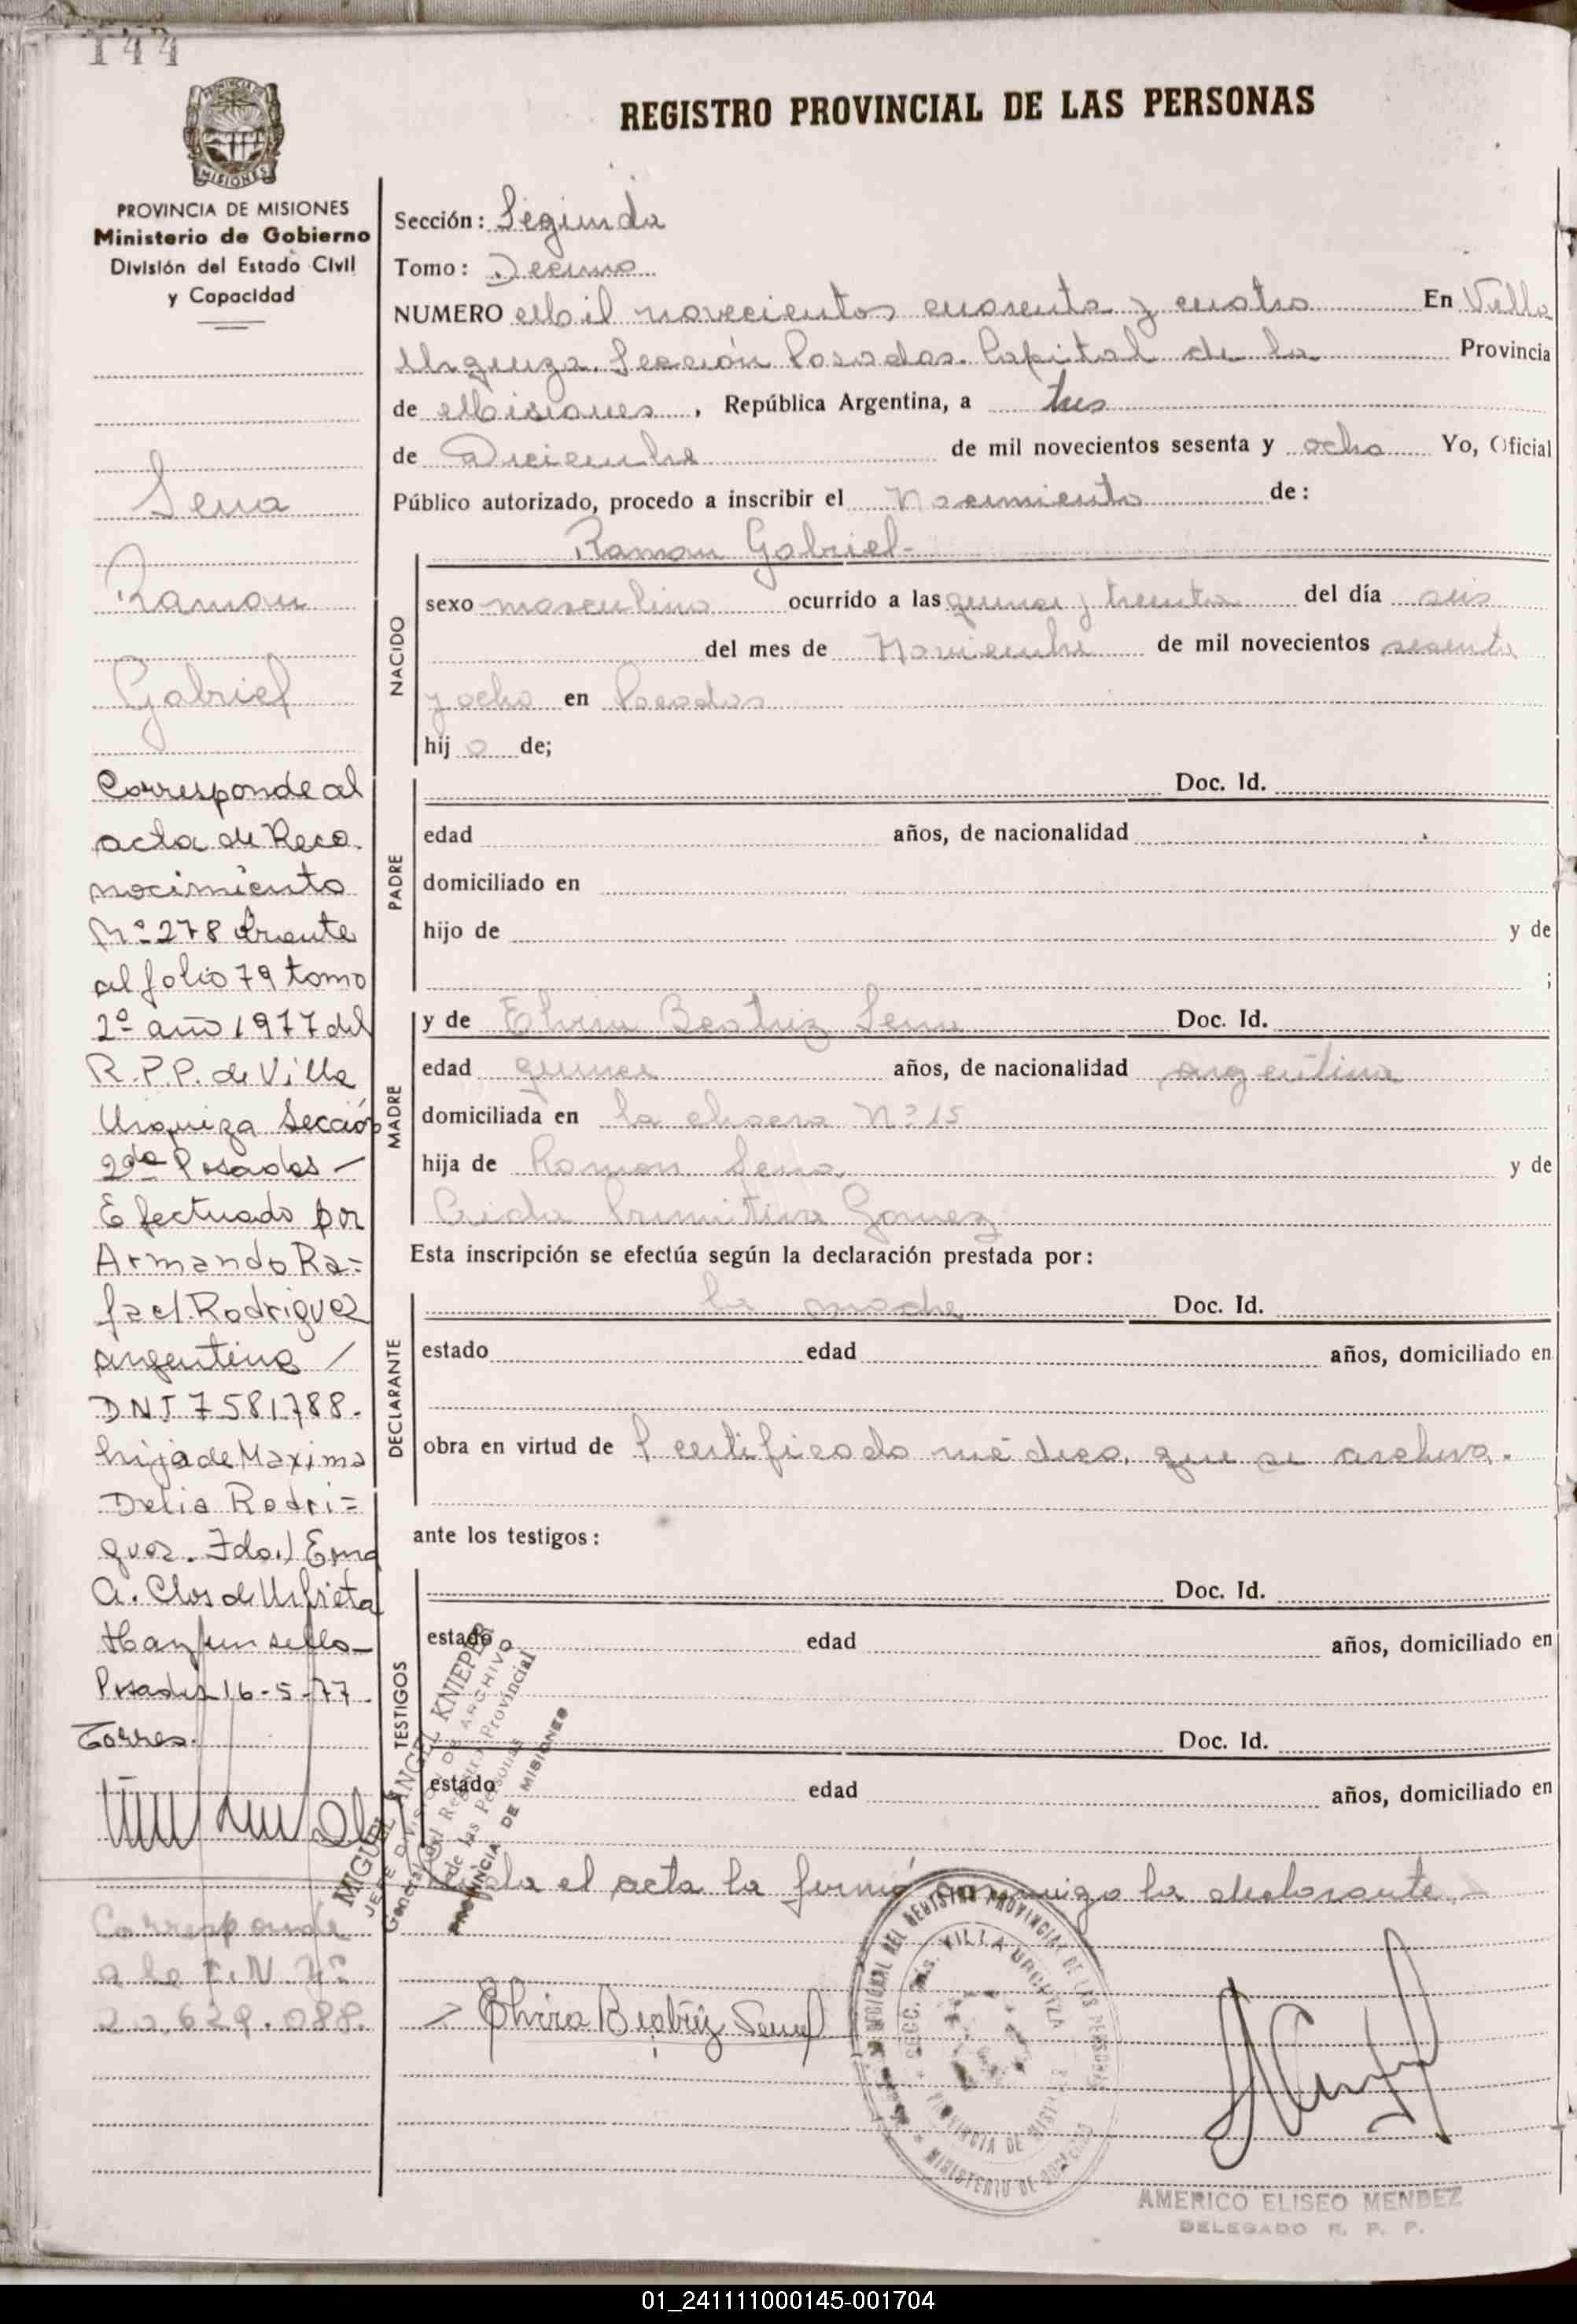 144
PROVINCIA DE MISIONES
Ministerio de Gobierno
División del Estado Civil
y Capacidad
Sena
Ramon
Gabriel
Corresponde al
acta de Reco
nocimiento
Nº 278 Frente
al folio 79 tomo
2º año 1977 del
R.P.P. de Villa
Urquiza Sección
2da Posadas -
Efectuado por
Armando Ra=
fael Rodriguez
argentino /
DNI 7581788.
hijo de Maxima
Delia Rodri=
guez. Fdo.) Ema
A. Clos de Urfieta
Hay un sello -
Posadas 16-5-77.
Torres.
Corresponde
a la
629.088.
REGISTRO PROVINCIAL DE LAS PERSONAS
Sección: Segunda
Tomo: Decimo
NUMERO Mil novecientos cuarenta y cuatro En Villa
Urquiza. Sección Posadas. Capital de la Provincia
de Misiones, República Argentina, a tres
de Diciembre de mil novecientos sesenta y ocho Yo, Oficial
Público autorizado, procedo a inscribir el Nacimiento de:
Ramon Gabriel-
NACIDO
sexo masculino ocurrido a las quince y treinta del día seis
del mes de Noviembre de mil novecientos sesenta
y ocho en Posadas
hijo de;
PADRE
Doc. Id.
edad años, de nacionalidad
domiciliado en
hijo de y de
;
MADRE
y de Elvira Beatriz Sena Doc. Id.
edad quince años, de nacionalidad argentina
domiciliada en la chacra Nº 15
hija de Ramon Sena y de
Primitiva Gomez
Esta inscripción se efectúa según la declaración prestada por:
DECLARANTE
la madre Doc. Id.
estado edad años, domiciliado en
obra en virtud de certificado médico, que se archiva.
ante los testigos:
TESTIGOS
Doc. Id.
estado edad años, domiciliado en
Doc. Id.
estado edad años, domiciliado en
MIGUEL ANGEL KNIEPER
JEFE DIVISION DE ARCHIVO
General del Registro Provincial
de las Personas
PROVINCIA DE MISIONES
Leida el acta la firmó conmigo la declarante.
Elvira Beatriz Sena
VILLA URQUIZA
PROVINCIA DE MISIONES
MINISTERIO DE GOBIERNO
AMERICO ELISEO MENDEZ
DELEGADO R. P. P.
01_241111000145-001704